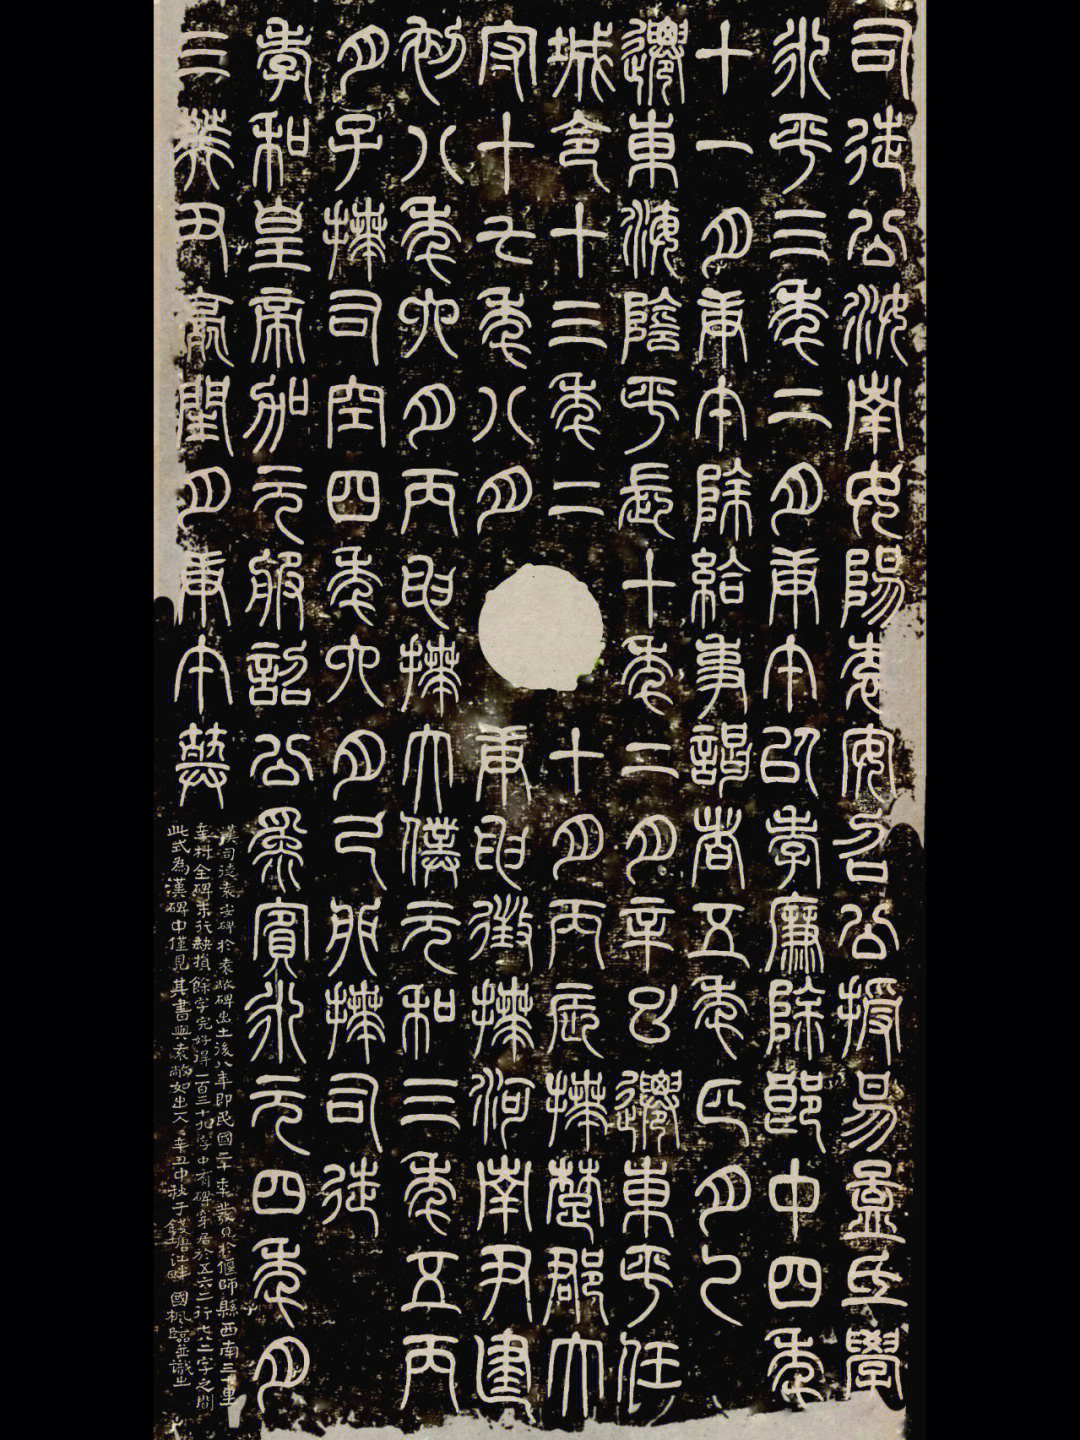 司徒公汝南女陽袁安召公授易孟氏學
永平三年二月庚午以孝廉除郎中四年
十一月庚午除給事謁者五年正月乙
遷東海陰平長十年二月辛巳遷東平任
城令十三年二十月丙辰拜楚郡大
守十七年八月庚申徵拜河南尹建
初八年六月丙申拜大僕元和三年五丙
月子拜司空四年六月己卯拜司徒
孝和皇帝加元服詔公為賓永元四年月
三癸丑薨閏月庚午葬
漢司徒袁安碑於袁敞碑出土後八年即民國二十年發見於偃師縣西南三十里
辛村全碑末行缺損餘字完好得一百三十九字中有碑穿居於五六二行七八二字之間
此式為漢碑中僅見其書與袁敞如出一人辛丑中秋于錢塘江畔國楓臨並識之